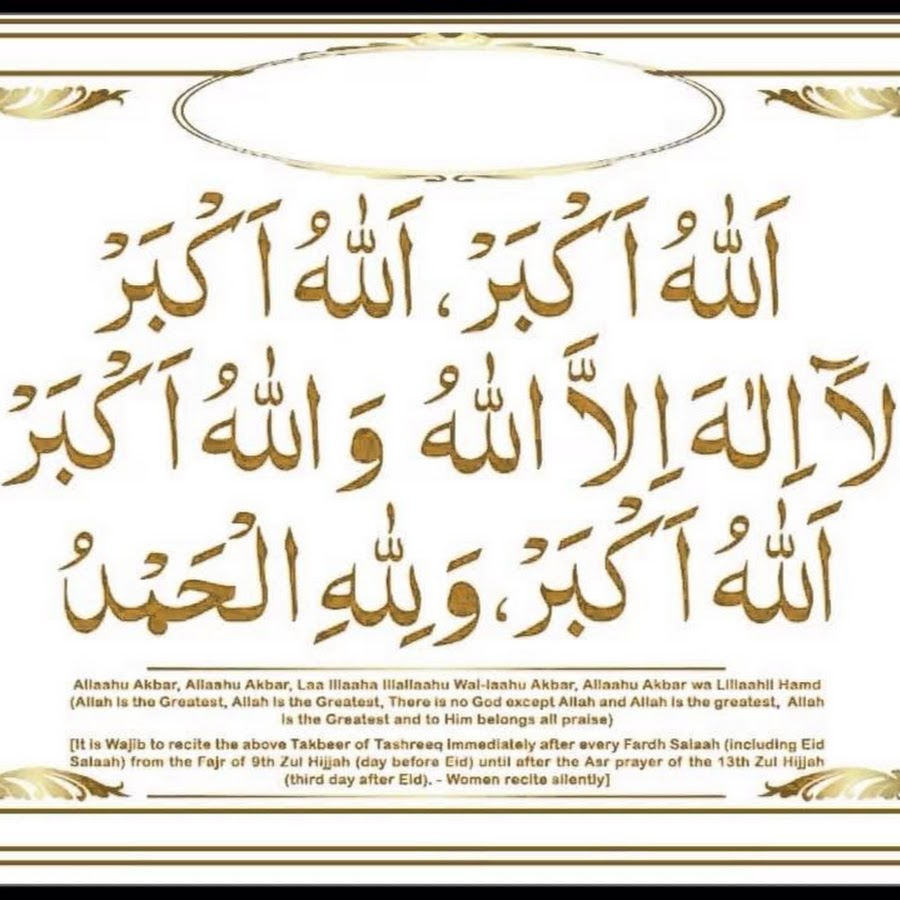 اَللّٰهُ اَكْبَرْ، اَللّٰهُ اَكْبَرْ
لَآ اِلٰهَ اِلاَّ اللّٰهُ وَاللّٰهُ اَكْبَرْ
اَللّٰهُ اَكْبَرْ، وَلِلّٰهِ الْحَمْدُ
Allaahu Akbar, Allaahu Akbar, Laa Illaaha Illallaahu Wal-laahu Akbar, Allaahu Akbar wa Lillaahil Hamd
(Allah is the Greatest, Allah is the Greatest, There is no God except Allah and Allah is the greatest, Allah
is the Greatest and to Him belongs all praise)
[It is Wajib to recite the above Takbeer of Tashreeq immediately after every Fardh Salaah (including Eid
Salaah) from the Fajr of 9th Zul Hijjah (day before Eid) until after the Asr prayer of the 13th Zul Hijjah
(third day after Eid). - Women recite silently]